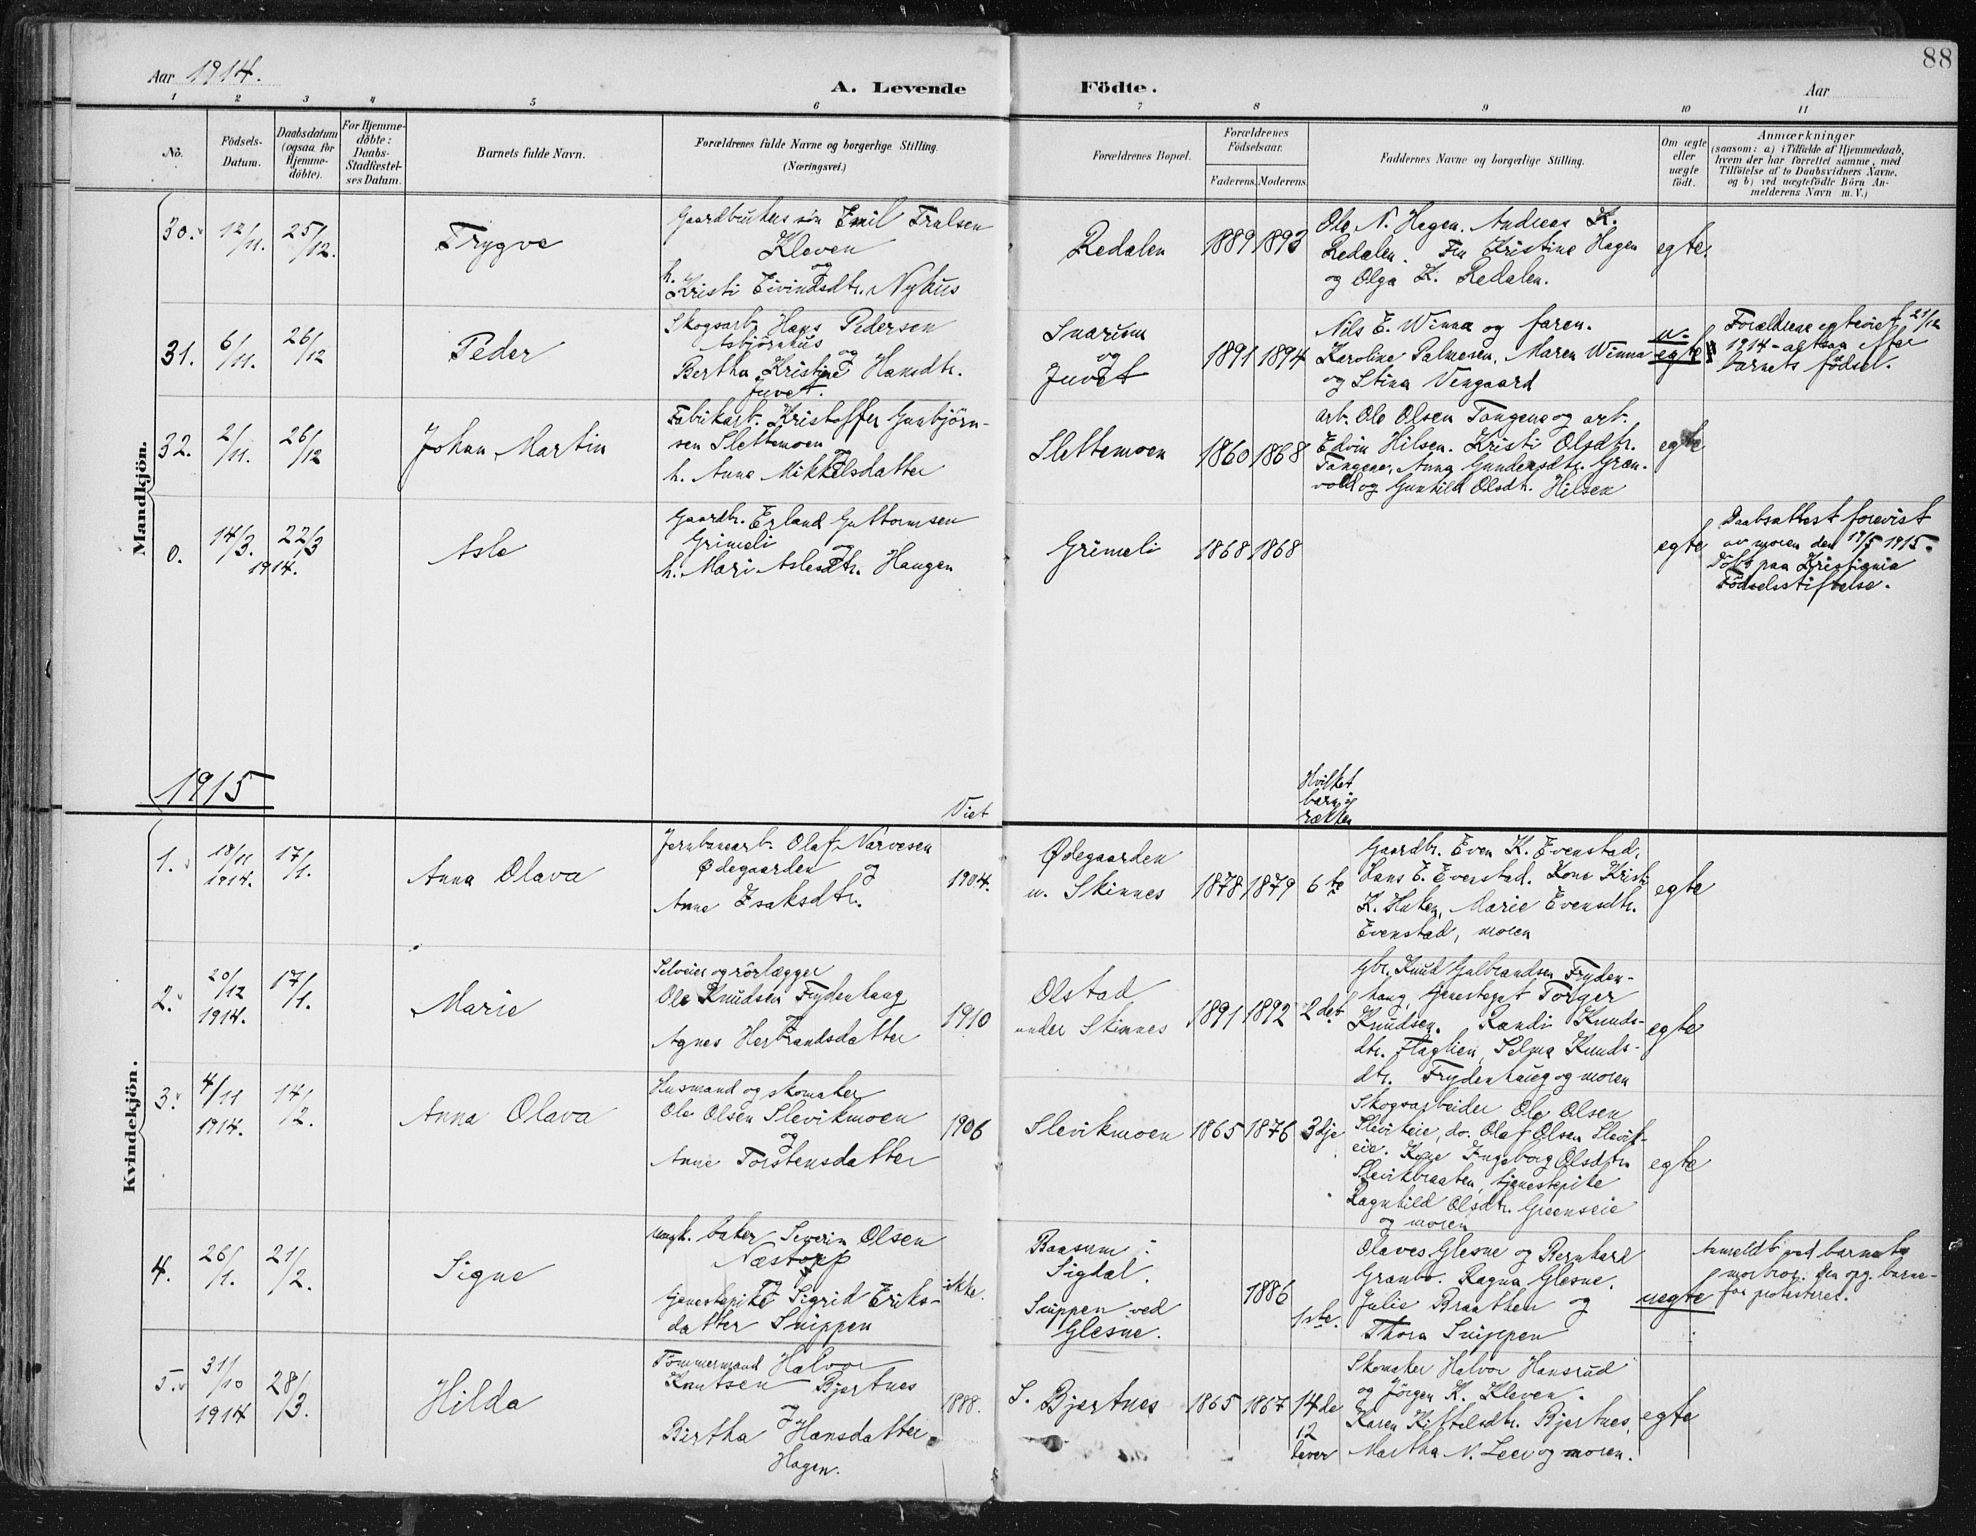 88
Aar 1914.
A. Levende Födte.
Aar
1 2 3 4 5 6 7 8 9 10 11
No.
Födsels-Datum.
Daabsdatum (ogsaa for Hjemme-döbte).
For Hjemme-döbte: Daabs-Stadfæstel-ses Datum.
Barnets fulde Navn.
Forældrenes fulde Navne og borgerlige Stilling.
(Næringsvei.)
Forældrenes Bopæl.
Forældrenes Födselsaar.
Faderens. Moderens.
Faddernes Navne og borgerlige Stilling.
Om ægte eller uægte födt.
Anmærkninger
(saasom: a) i Tilfælde af Hjemmedaab,
hvem der har forrettet samme, med
Tilföielse af to Daabsvidners Navne.
og b) ved uægtefödte Börn An-
melderens Navn m. V.)
Mandkjön.
30. 12/11. 25/12. Trygve
Gaardbrukers sön Emil Trulsen
Kleven
og
h. Kristi Eivindsdtr. Nyhus
Redalen 1889 1893
Ole N. Hagen. Andreas K.
Redalen. Fru Kristine Hagen
og Olga K. Redalen.
egte.
31. 6/11. 26/12 Peder
Skogsarb. Hans Pedersen
Asbjörnhus
og
Bertha Kristine Hansdtr.
Juvet.
Snarum
og
Juvet
1891 1894
Nils E. Winna og faren.
Karoline Palmesen, Maren Winna
og Stina Vengaard
u.
egte
Forældrene egteviet 21/12
1914 - altsaa efter
barnets födsel.
32. 2/11. 26/12 Johan Martin
Fabrikarb. Kristoffer Gunbjörn-
sen Slettemoen
og
h. Anne Mikkelsdatter
Slettemoen 1860 1868
arb. Ole Olsen Tangene og arb.
Edvin Hilsen. Kristi Olsdtr.
Tangene, Anna Gundersdtr. Græn-
vold og Gunhild Olsdtr. Hilsen
egte
0. 14/3. 22/3 1914. Asle
Gaardbr. Erland Guttormsen
Grimeli
og
h. Mari Aslesdtr. Haugen
Grimeli 1868 1868
egte
Daabsattest forevist
av moren den 19/5 1915.
Döbt paa Kristiania
Födselsstiftelse.
1915
Viet
Hvilket
barn i
rækken
Kvindekjön.
1. 18/11 1914. 17/1. Anna Olava
Jernbanearb. Olaf Narvesen
Ødegaarden og
Anne Isaksdtr.
1904.
Ødegaarden
u. Skinnes
1878 1879 6te
Gaardbr. Even K. Evenstad,
Hans E. Evenstad. Kone Kristi
K. Huken, Marie Evensdtr.
Evenstad, moren
egte
2. 20/12 1914. 17/1. Marie
Selveier og rörlægger
Ole Knudsen Frydenhaug
og
Agnes Herbrandsdatter
1910
Olstad
under Skinnes
1891 1892 2det
Gbr. Knud Gulbrandsen Fryden-
haug, tjenestegut Torger
Knudsen. Randi Knuds-
dtr. Flaglien, Selma Knuds-
dtr. Frydenhaug og moren
egte
3. 4/11 1914. 14/2. Anna Olava
Husmand og skomaker
Ole Olsen Slevikmoen
og
Anne Torstensdatter
1906
Slevikmoen 1865 1876 3dje
Skogsarbeider Ole Olsen
Slevikeie, do. Olaf Olsen Slevik-
eie. Kone Ingeborg Olsdtr.
Slevikbraaten, tjenestepike
Ragnhild Olsdtr. Greenseie
og moren
egte
4. 26/1. 21/2. Signe
ungk. baker Severin Olsen
Næstopp
og
tjenestepike Sigrid Eriks-
datter Snippen
ikke.
Baasum i
Sigdal.
Snippen ved
Glesne.
1886 1ste.
Olaves Glesne og Bernhard
Grando. Ragna Glesne.
Julie Braathen og
Thora Snippen
uegte
Anmeldt ved barnets
morbror. Den opg. barne-
far protesterer.
5. 31/10 1914 28/3. Hilda
Tömmermand Halvor
Knutsen Bjertnes
og
Birtha Hansdatter
Hagen.
1888.
S. Bjertnes 1865 1867 14de
12
lever
Skomaker Halvor Hansrud
og Jörgen K. Kleven.
Karen Kittelsdtr. Bjertnes,
Martha N. Leer og moren.
egte